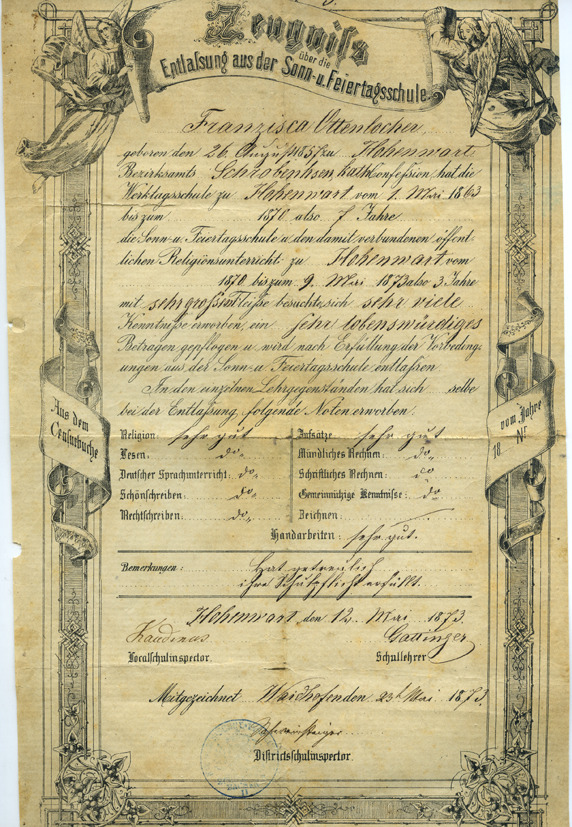 Zeugniss
über die
Entlassung aus der Sonn- u. Feiertagsschule.
Franzisca Ottenlocher,
geboren den 26. August 1857 zu Hohenwart
Bezirksamts Schrobenhsen, kath. Confession, hat die
Werktagsschule zu Hohenwart vom 1. Mai 1863
bis zum 1870 also 7 Jahre
die Sonn- u. Feiertagsschule u. den damit verbundenen öffent-
lichen Religionsunterricht zu Hohenwart vom
1870 bis zum 9. Mai 1873 also 3 Jahre
mit sehr großem Fleiße besucht, sich sehr viele
Kenntniße erworben, ein sehr lobenswürdiges
Betragen gepflogen u. wird nach Erfüllung der Vorbeding-
ungen aus der Sonn- u. Feiertagsschule entlassen.
In den einzelnen Lehrgegenständen hat sich selbe
bei der Entlassung folgende Noten erworben.
Aus dem
Censurbuche
vom Jahre
18 Nr.
Religion: sehr gut
Aufsätze: sehr gut
Lesen: do
Mündliches Rechnen: do
Deutscher Sprachunterricht: do
Schriftliches Rechnen: do
Schönschreiben: do
Gemeinnützige Kenntnisse: do
Rechtschreiben: do
Zeichnen
Handarbeiten: sehr gut.
Bemerkungen: Hat getreulich
ihre Schulpflicht erfüllt.
Hohenwart den 12. Mai 1873.
Gattinger
Localschulinspector.
Schullehrer
Mitgezeichnet Waidhofen den 23t Mai 1873.
Districtsschulinspector.